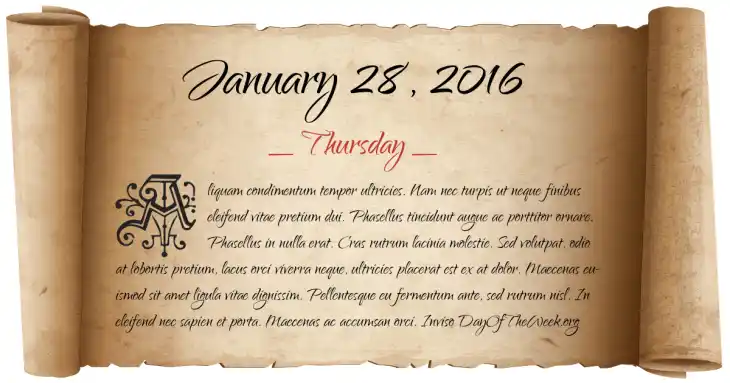 January 28, 2016
_ Thursday _
Aliquam condimentum tempor ultricies. Nam nec turpis ut neque finibus
eleifend vitae pretium dui. Phasellus tincidunt augue ac porttitor ornare.
Phasellus in nulla erat. Cras rutrum lacinia molestie. Sed volutpat, odio
at lobortis pretium, lacus orci viverra neque, ultricies placerat est ex at dolor. Maecenas eu-
ismod sit amet ligula vitae dignissim. Pellentesque eu fermentum ante, sed rutrum nisl. In
eleifend nec sapien et porta. Maecenas ac accumsan orci. Inviso DayOfTheWeek.org